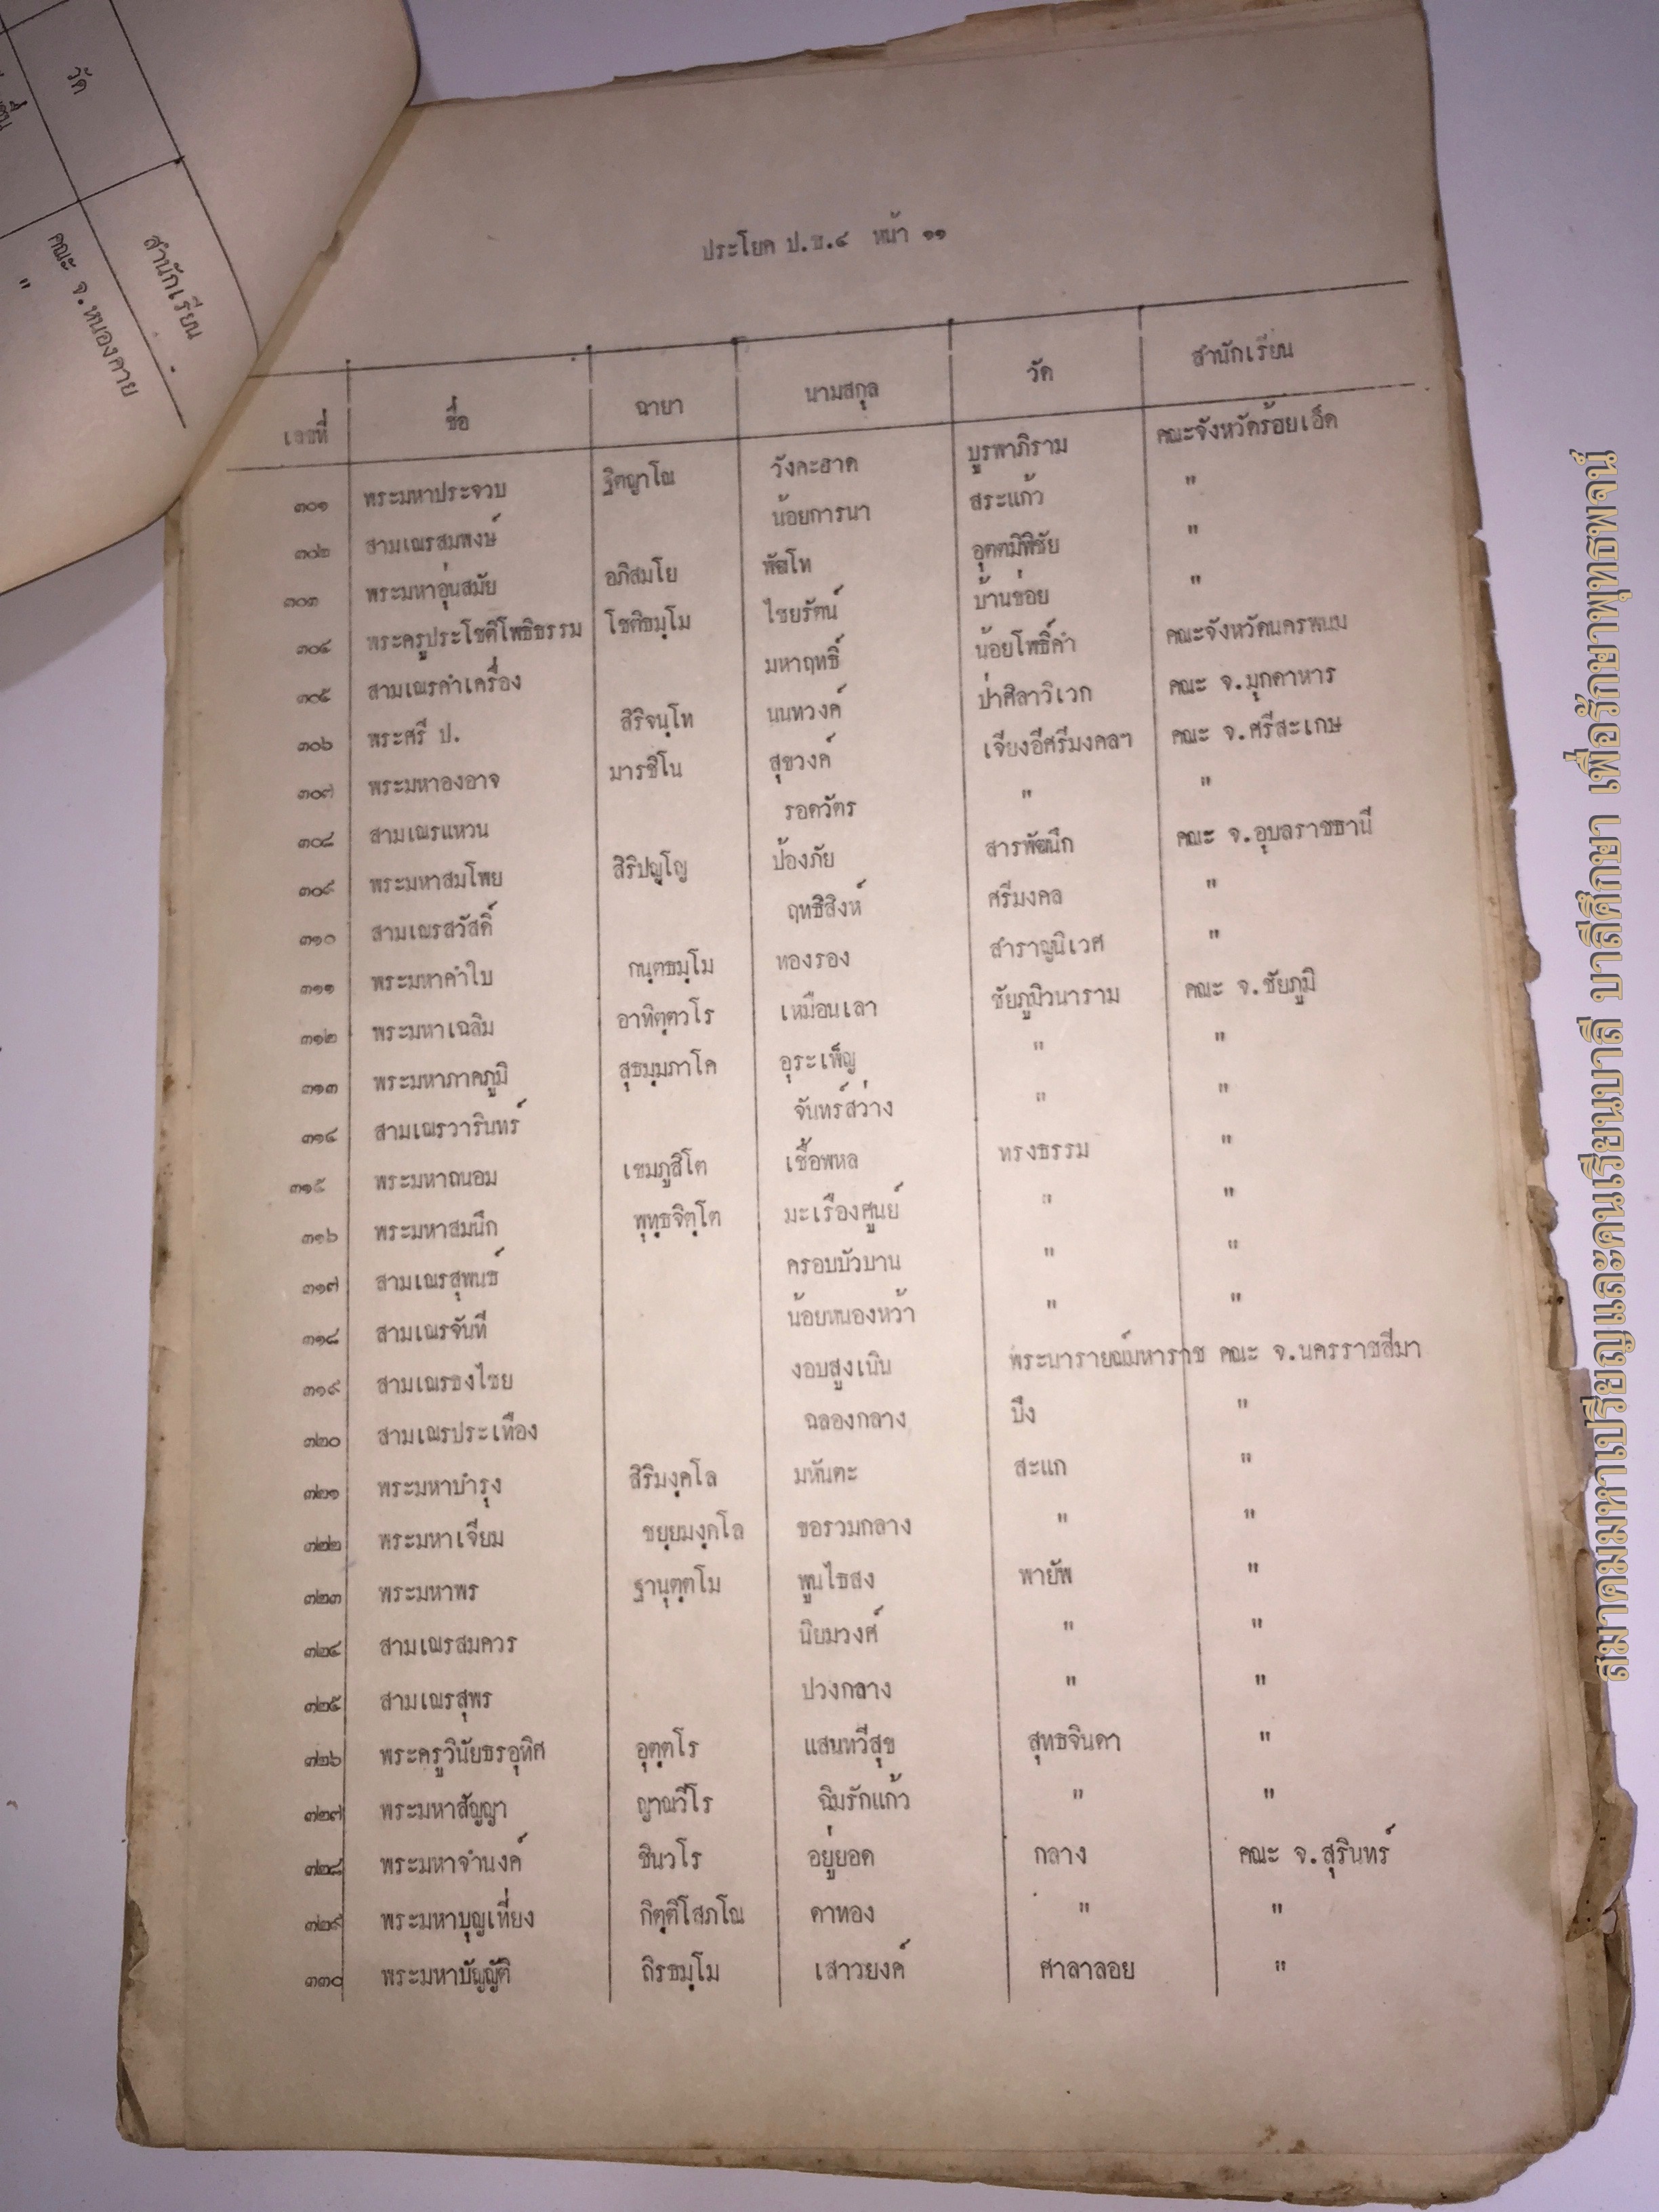 วัด
สำนักเรียน
คณะ จ.หนองคาย
"
ประโยค ป.ธ.๔ หน้า ๑๑
เลขที่ ชื่อ ฉายา นามสกุล วัด สำนักเรียน
๓๐๑ พระมหาประจวบ ฐิตญาโณ วังคะฮาด บูรพาภิราม คณะจังหวัดร้อยเอ็ด
๓๐๒ สามเณรสมพงษ์ น้อยการนา สระแก้ว "
๓๐๓ พระมหาอุ่นสมัย อภิสมโย พัฒโท อุตตมิพิชัย "
๓๐๔ พระครูประโชติโพธิธรรม โชติธมฺโม ไชยรัตน์ บ้านข่อย "
๓๐๕ สามเณรคำเครื่อง มหาฤทธิ์ น้อยโพธิ์คำ คณะจังหวัดนครพนม
๓๐๖ พระศรี ป. สิริจนฺโท นนทวงค์ ป่าศิลาวิเวก คณะ จ.มุกดาหาร
๓๐๗ พระมหาองอาจ มารชิโน สุขวงค์ เจียงอีศรีมงคลฯ คณะ จ.ศรีสะเกษ
๓๐๘ สามเณรแหวน รอดวัตร " "
๓๐๙ พระมหาสมโพย สิริปญฺโญ ป้องภัย สารพัฒนึก คณะ จ.อุบลราชธานี
๓๑๐ สามเณรสวัสดิ์ ฤทธิสิงห์ ศรีมงคล "
๓๑๑ พระมหาคำใบ กนฺตธมฺโม ทองรอง สำราญนิเวศ "
๓๑๒ พระมหาเฉลิม อาทิตฺตวโร เหมือนเลา ชัยภูมิวนาราม คณะ จ.ชัยภูมิ
๓๑๓ พระมหาภาคภูมิ สุธมฺมภาโค อุระเพ็ญ " "
๓๑๔ สามเณรวารินทร์ จันทร์สว่าง " "
๓๑๕ พระมหาถนอม เขมภูสิโต เชื้อพหล ทรงธรรม "
๓๑๖ พระมหาสมนึก พุทฺธจิตฺโต มะเรืองศูนย์ " "
๓๑๗ สามเณรสุพนธ์ ครอบบัวบาน " "
๓๑๘ สามเณรจันที น้อยหนองหว้า " "
๓๑๙ สามเณรธงไชย งอบสูงเนิน พระนารายณ์มหาราช คณะ จ.นครราชสีมา
๓๒๐ สามเณรประเทือง ฉลองกลาง บึง "
๓๒๑ พระมหาบำรุง สิริมงฺคโล มหันตะ สะแก "
๓๒๒ พระมหาเจียม ชยฺยมงฺคโล ขอรวมกลาง " "
๓๒๓ พระมหาพร ฐานุตฺตโม พูนไธสง พายัพ "
๓๒๔ สามเณรสมควร นิยมวงศ์ " "
๓๒๕ สามเณรสุพร ปวงกลาง " "
๓๒๖ พระครูวินัยธรอุทิศ อุตฺตโร แสนทวีสุข สุทธจินดา "
๓๒๗ พระมหาสัญญา ญาณวีโร ฉิมรักแก้ว " "
๓๒๘ พระมหาจำนงค์ ชินวโร อยู่ยอด กลาง คณะ จ.สุรินทร์
๓๒๙ พระมหาบุญเที่ยง กิตฺติโสภโณ คาทอง " "
๓๓๐ พระมหาบัญญัติ ถิรธมฺโม เสาวยงค์ ศาลาลอย "
สมาคมมหาเปรียญและคนเรียนบาลี บาลีศึกษา เพื่อรักษาพุทธพจน์